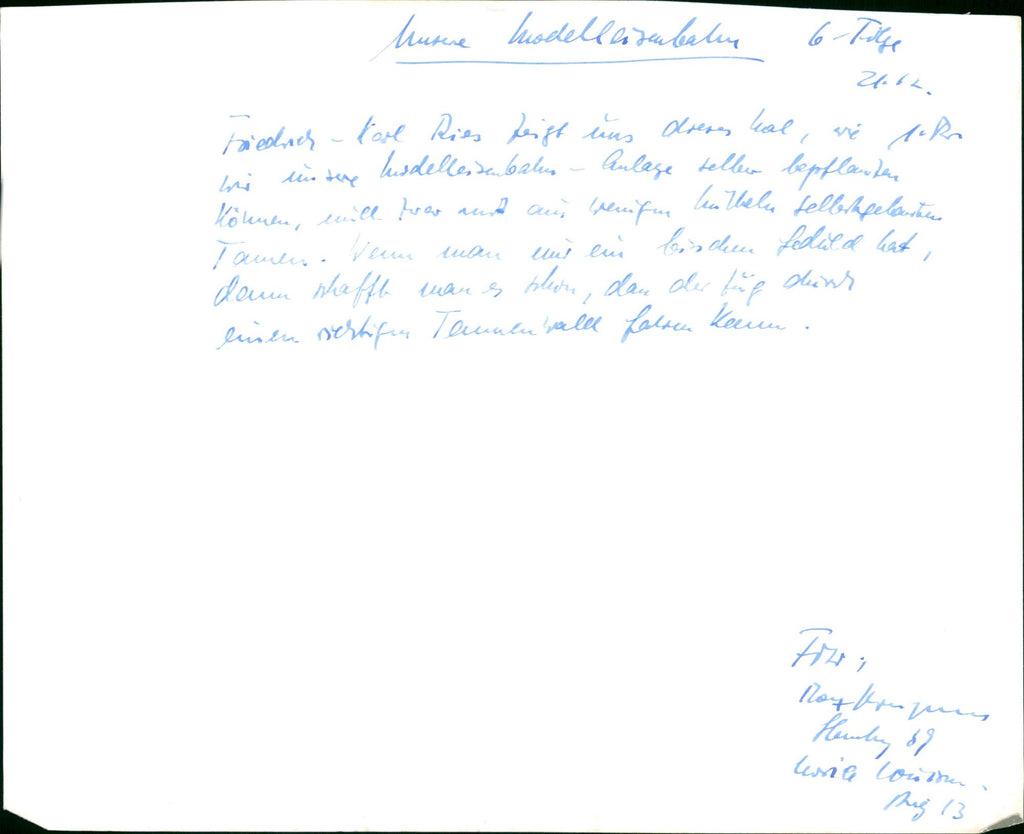 Unsere Modelleisenbahn 6-Folge
21.12.
Friedrich-Karl Ries zeigt uns dieses Mal, wie 1. Pr.
wir unsere Modelleisenbahn-Anlage selber bepflanzen
können, und zwar mit aus wenigen Mitteln selbstgebauten
Tannen. Wenn man nur ein bischen Geduld hat,
dann schafft man es schon, dass der Zug durch
einen richtigen Tannenwald fahren kann.
Foto:
Hamburg
13